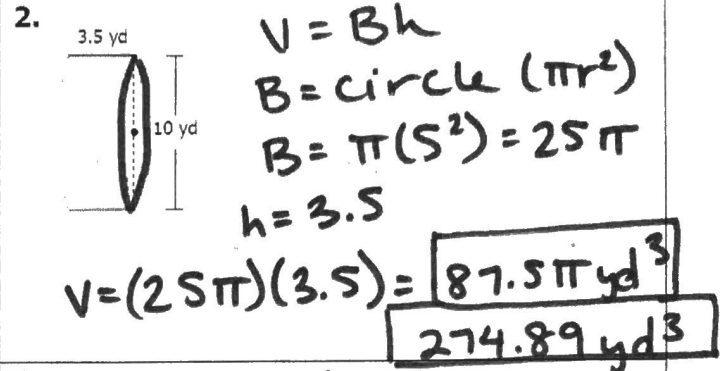 2.
3.5 yd
10 yd
V = Bh
B = circle (πr²)
B = π(5²) = 25π
h = 3.5
V=(25π)(3.5) = 87.5π yd³
274.89 yd³